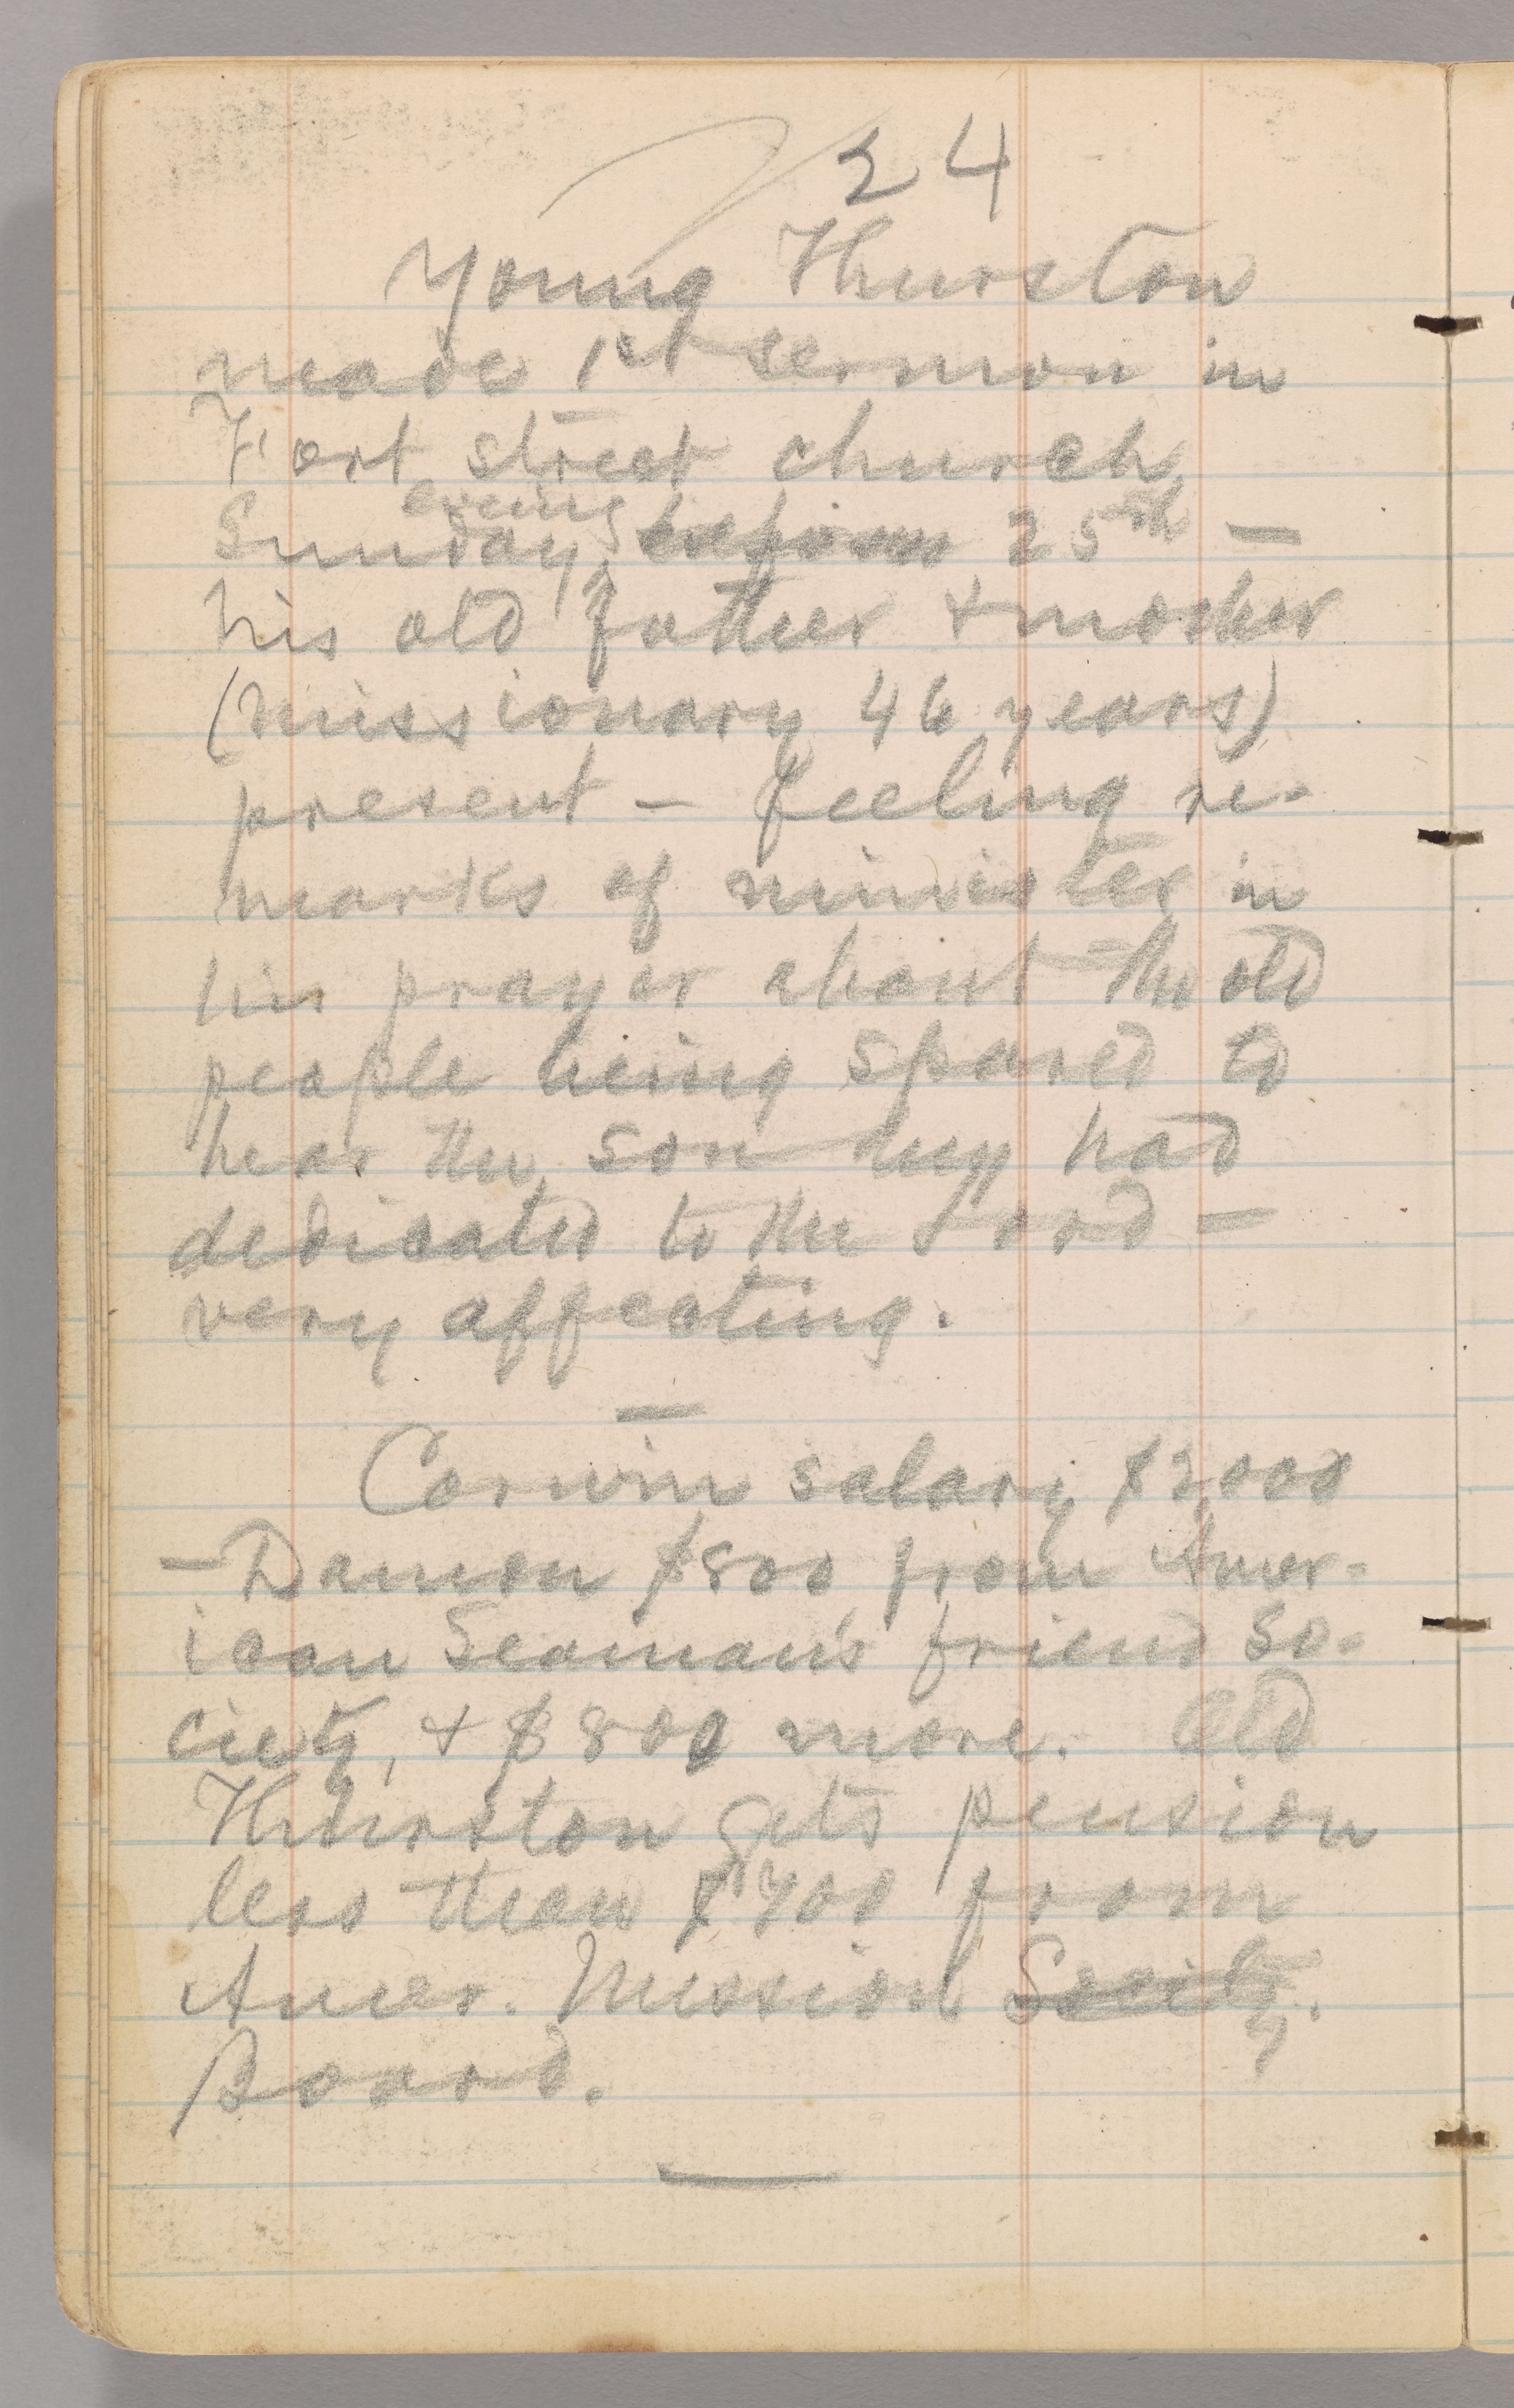 24
Young Thurston
made 1st sermon in
Fort street church
evening
Sunday, before 25th —
his old father & mother
(missionary 46 years)
present — feeling re-
marks of minister in
his prayer about the old
people being spared to
hear the son they had
dedicated to the Lord —
very affecting.
—
Corwin salary $2,000
— Damon $800 from Amer-
ican Seaman's friend So-
ciety, & $800 more. Old
Thurston gets pension
less than $700 from
Amer. Mission Society.
Board.